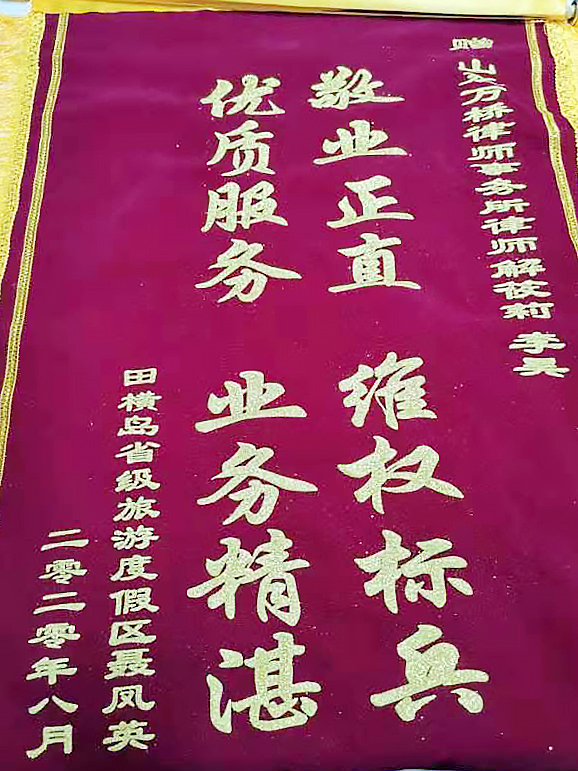 赠 山东万桥律师事务所律师解 李昊
敬业正直 维权标兵
优质服务 业务精湛
田横岛省级旅游度假区聂凤英
二零二零年八月